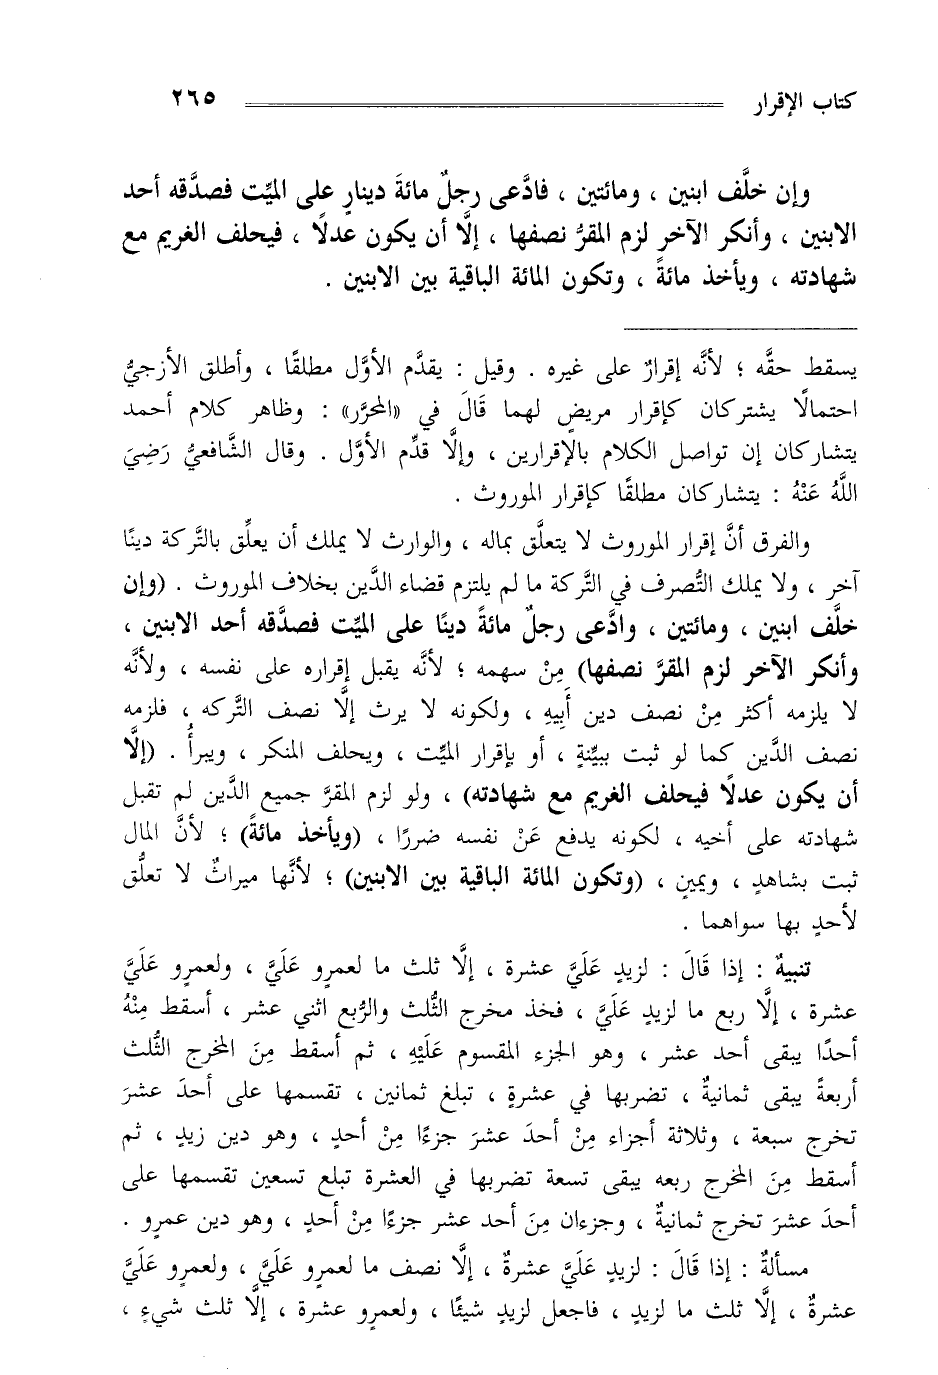 كتاب الإقرار ٢٦٥
وإن خلَّف ابنين ، ومائتين ، فادَّعى رجلٌ مائةَ دينارٍ على الميِّت فصدَّقه أحد
الابنين ، وأنكر الآخر لزم المقرُّ نصفها ، إلَّا أن يكون عدلًا ، فيحلف الغريم مع
شهادته ، ويأخذ مائةً ، وتكون المائة الباقية بين الابنين .
يسقط حقَّه ؛ لأنَّه إقرارٌ على غيره . وقيل : يقدَّم الأوَّل مطلقًا ، وأطلق الأزجيُّ
احتمالًا يشتركان كإقرار مريضٍ لهما قَالَ في «المحرَّر» : وظاهر كلام أحمد
يتشاركان إن تواصل الكلام بالإقرارين ، وإلَّا قدِّم الأوَّل . وقال الشَّافعيُّ رَضِيَ
اللَّهُ عَنْهُ : يتشاركان مطلقًا كإقرار الموروث .
والفرق أنَّ إقرار الموروث لا يتعلَّق بماله ، والوارث لا يملك أن يعلِّق بالتَّركة دينًا
آخر ، ولا يملك التُّصرف في التَّركة ما لم يلتزم قضاء الدَّين بخلاف الموروث . (وإن
خلَّف ابنين ، ومائتين ، وادَّعى رجلٌ مائةً دينًا على الميِّت فصدَّقه أحد الابنين ،
وأنكر الآخر لزم المقرَّ نصفها) مِنْ سهمه ؛ لأنَّه يقبل إقراره على نفسه ، ولأنَّه
لا يلزمه أكثر مِنْ نصف دين أَبِيهِ ، ولكونه لا يرث إلَّا نصف التَّركه ، فلزمه
نصف الدَّين كما لو ثبت ببيِّنةٍ ، أو بإقرار الميِّت ، ويحلف المنكر ، ويبرأُ . (إلَّا
أن يكون عدلًا فيحلف الغريم مع شهادته) ، ولو لزم المقرَّ جميع الدَّين لم تقبل
شهادته على أخيه ، لكونه يدفع عَنْ نفسه ضررًا ، (ويأخذ مائةً) ؛ لأنَّ المال
ثبت بشاهدٍ ، ويمينٍ ، (وتكون المائة الباقية بين الابنين) ؛ لأنَّها ميراثٌ لا تعلُّق
لأحدٍ بها سواهما .
تنبيهٌ : إذا قَالَ : لزيدٍ عَلَيَّ عشرة ، إلَّا ثلث ما لعمرٍو عَلَيَّ ، ولعمرٍو عَلَيَّ
عشرة ، إلَّا ربع ما لزيدٍ عَلَيَّ ، فخذ مخرج الثُّلث والرُّبع اثني عشر ، أسقط مِنْهُ
أحدًا يبقى أحد عشر ، وهو الجزء المقسوم عَلَيْهِ ، ثم أسقط مِنَ المخرج الثُّلث
أربعةً يبقى ثمانيةٌ ، تضربها في عشرةٍ ، تبلغ ثمانين ، تقسمها على أحدَ عشرَ
تخرج سبعة ، وثلاثة أجزاء مِنْ أحدَ عشرَ جزءًا مِنْ أحدٍ ، وهو دين زيدٍ ، ثم
أسقط مِنَ المخرج ربعه يبقى تسعة تضربها في العشرة تبلغ تسعين تقسمها على
أحدَ عشرَ تخرج ثمانيةٌ ، وجزءان مِنَ أحد عشر جزءًا مِنْ أحدٍ ، وهو دين عمرٍو .
مسألةٌ : إذا قَالَ : لزيدٍ عَلَيَّ عشرةٌ ، إلَّا نصف ما لعمرٍو عَلَيَّ ، ولعمرٍو عَلَيَّ
عشرةٌ ، إلَّا ثلث ما لزيدٍ ، فاجعل لزيدٍ شيئًا ، ولعمرٍو عشرة ، إلَّا ثلث شيءٍ ،